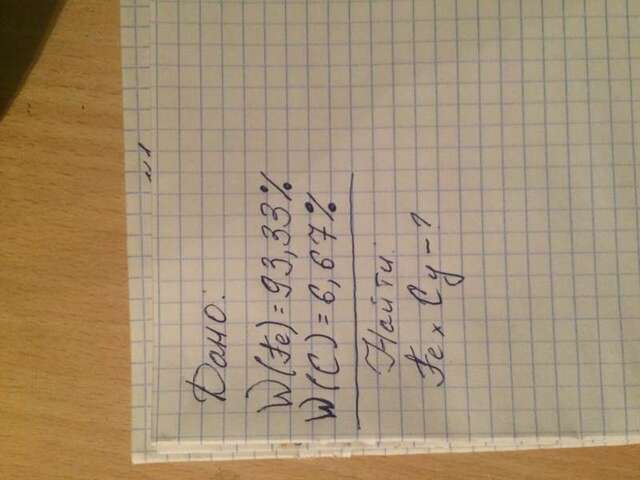 №1
Дано:
W(Fe) = 93,33%
W(C) = 6,67%
Найти:
FexCy - ?